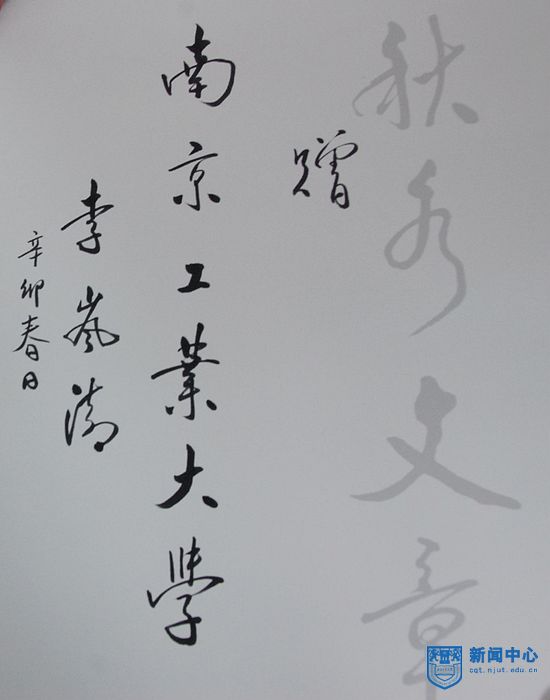 秋水文章
贈
南京工業大學
李嵐清
辛卯春日
新闻中心
cqt.njut.edu.cn